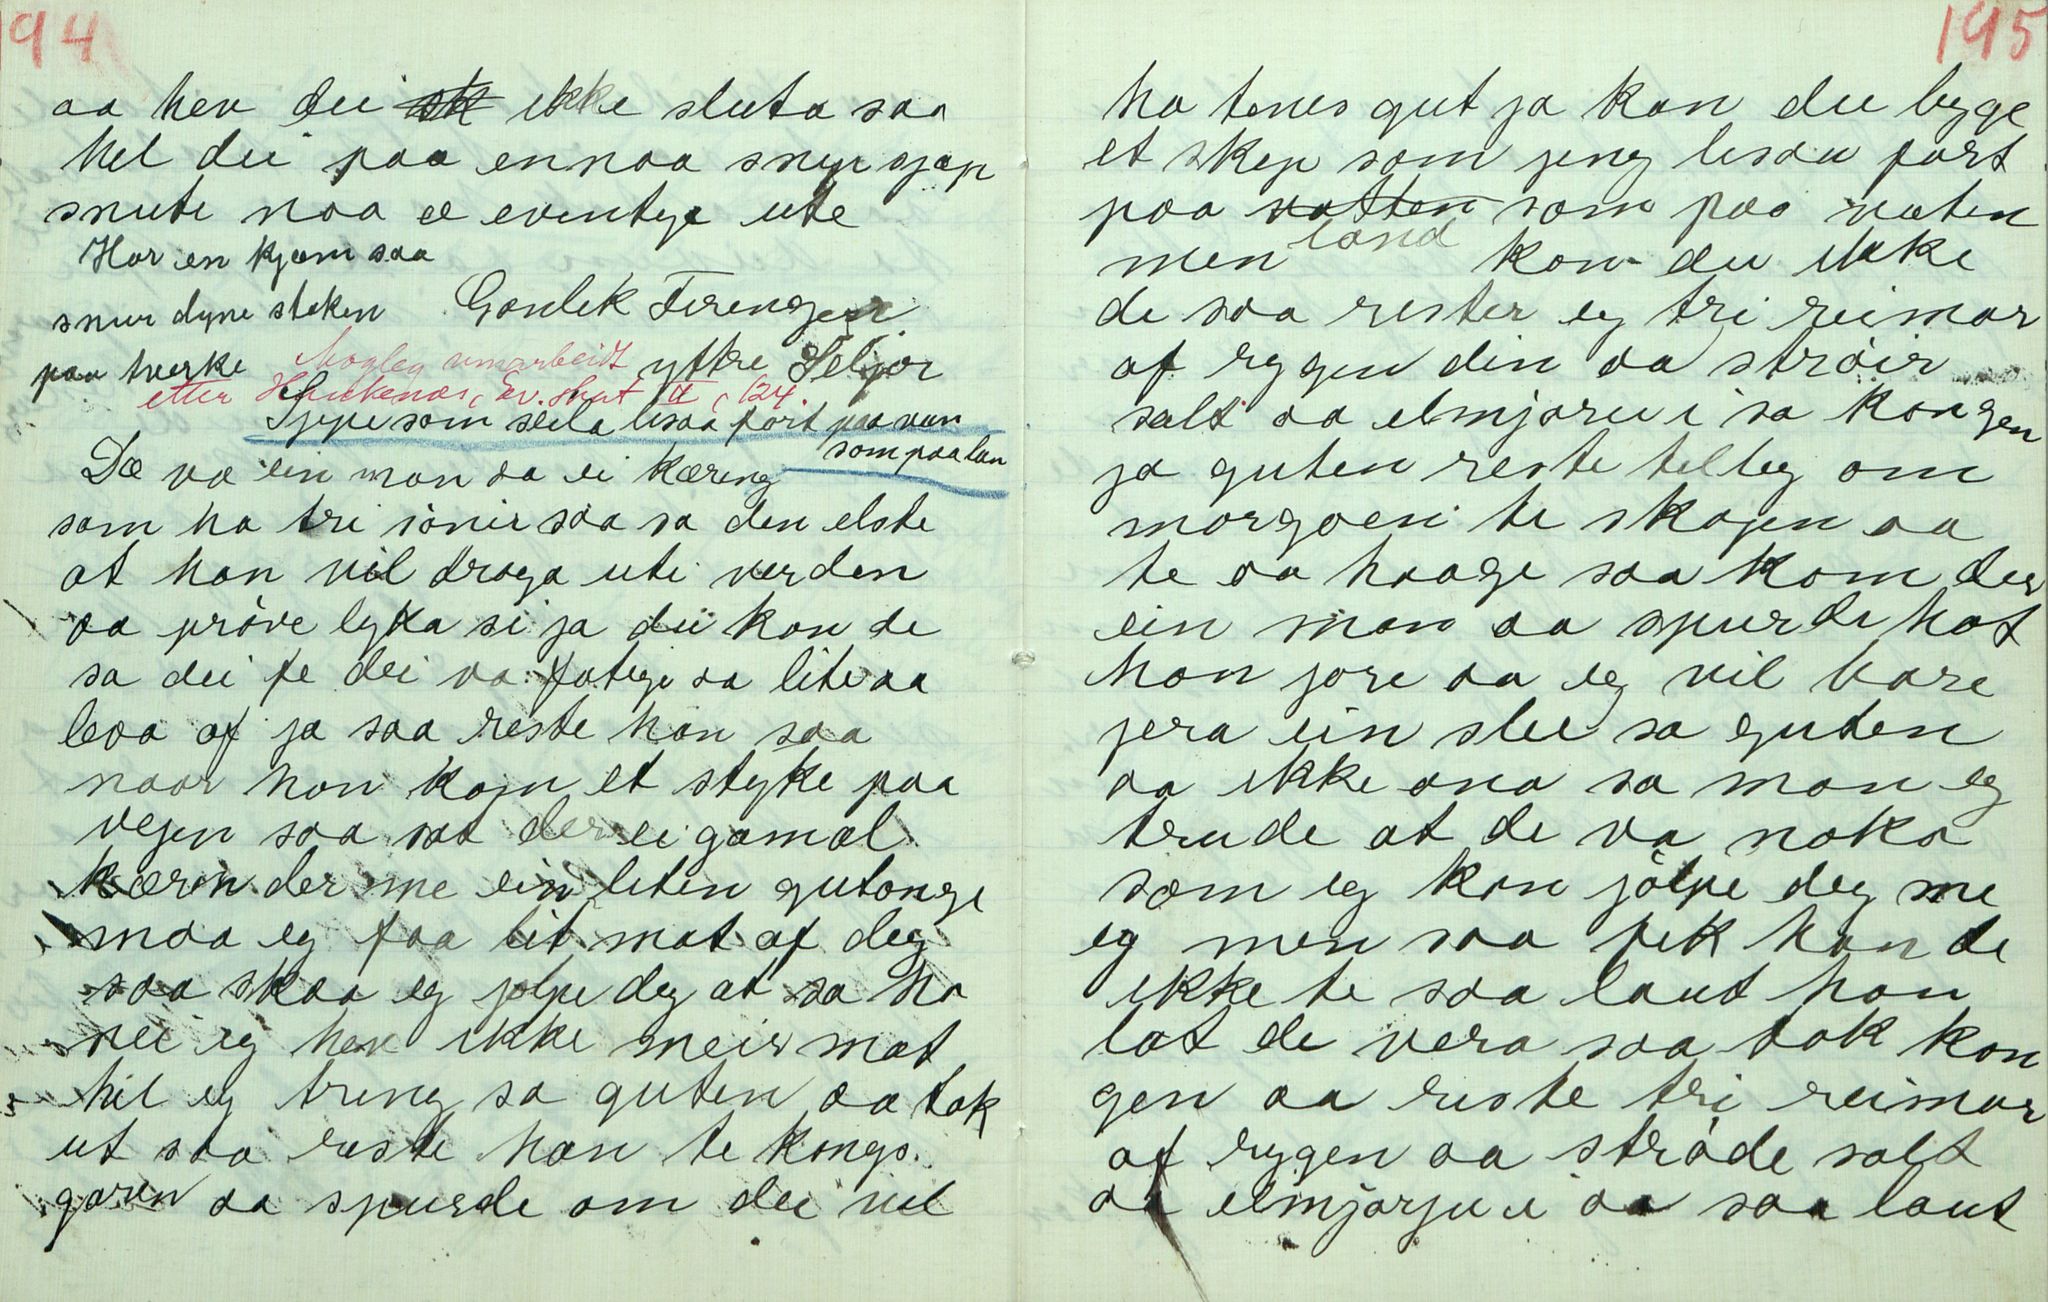 94
aa hev dei sk ikke sluta saa
hel dei paa ennaa snyp snap
snute naa e eventye ute
Har en kjæm saa
snur dyne steken Gonlek Tirenger
paa tverke Mogleg umarbeidt yttre Seljor
etter Haukenæs, Ev. skat II, 124.
Sjepe som sleela lisaa fort paa van
som paa lan
Dæ va ein man aa ei kæring
som ha tri sönir saa sa den elste
at han vil draga uti verden
aa pröve lyka si ja dei kan de
sa dei fe dei va fatige aa lite aa
leva af ja saa reste han saa
naar han kom et styke paa
vejen saa sat der ei gamal
kæren der me ein liten gutonge
maa eg faa lit mat af deg
saa skaa eg jolpe deg at sa ho
nei eg hev ikke meir mat
hil eg treng sa guten aa tok
ut saa reste han te kongs.
garen aa spurde om dei vil
195
ha tenes gut ja kan du byge
et skep som jeng lisaa fort
paa vatten som paa vaten
men land kan du ikke
de saa rester eg tri reimar
af rygen din aa ströir
salt aa elmjøru i sa kongen
ja guten reste telleg om
morgoen te skogen aa
te aa haage saa kom der
ein man aa spurde hat
han jore aa eg vil bare
jera ein slee sa guten
aa ikke ana sa man eg
trude at de va noka
som eg kan jölpe deg me
eg men saa fek han de
ikke te saa laut han
lat de vera saa tok kon
gen aa reste tri reimar
af rygen aa ströde salt
aa elmjørju i aa saa laut